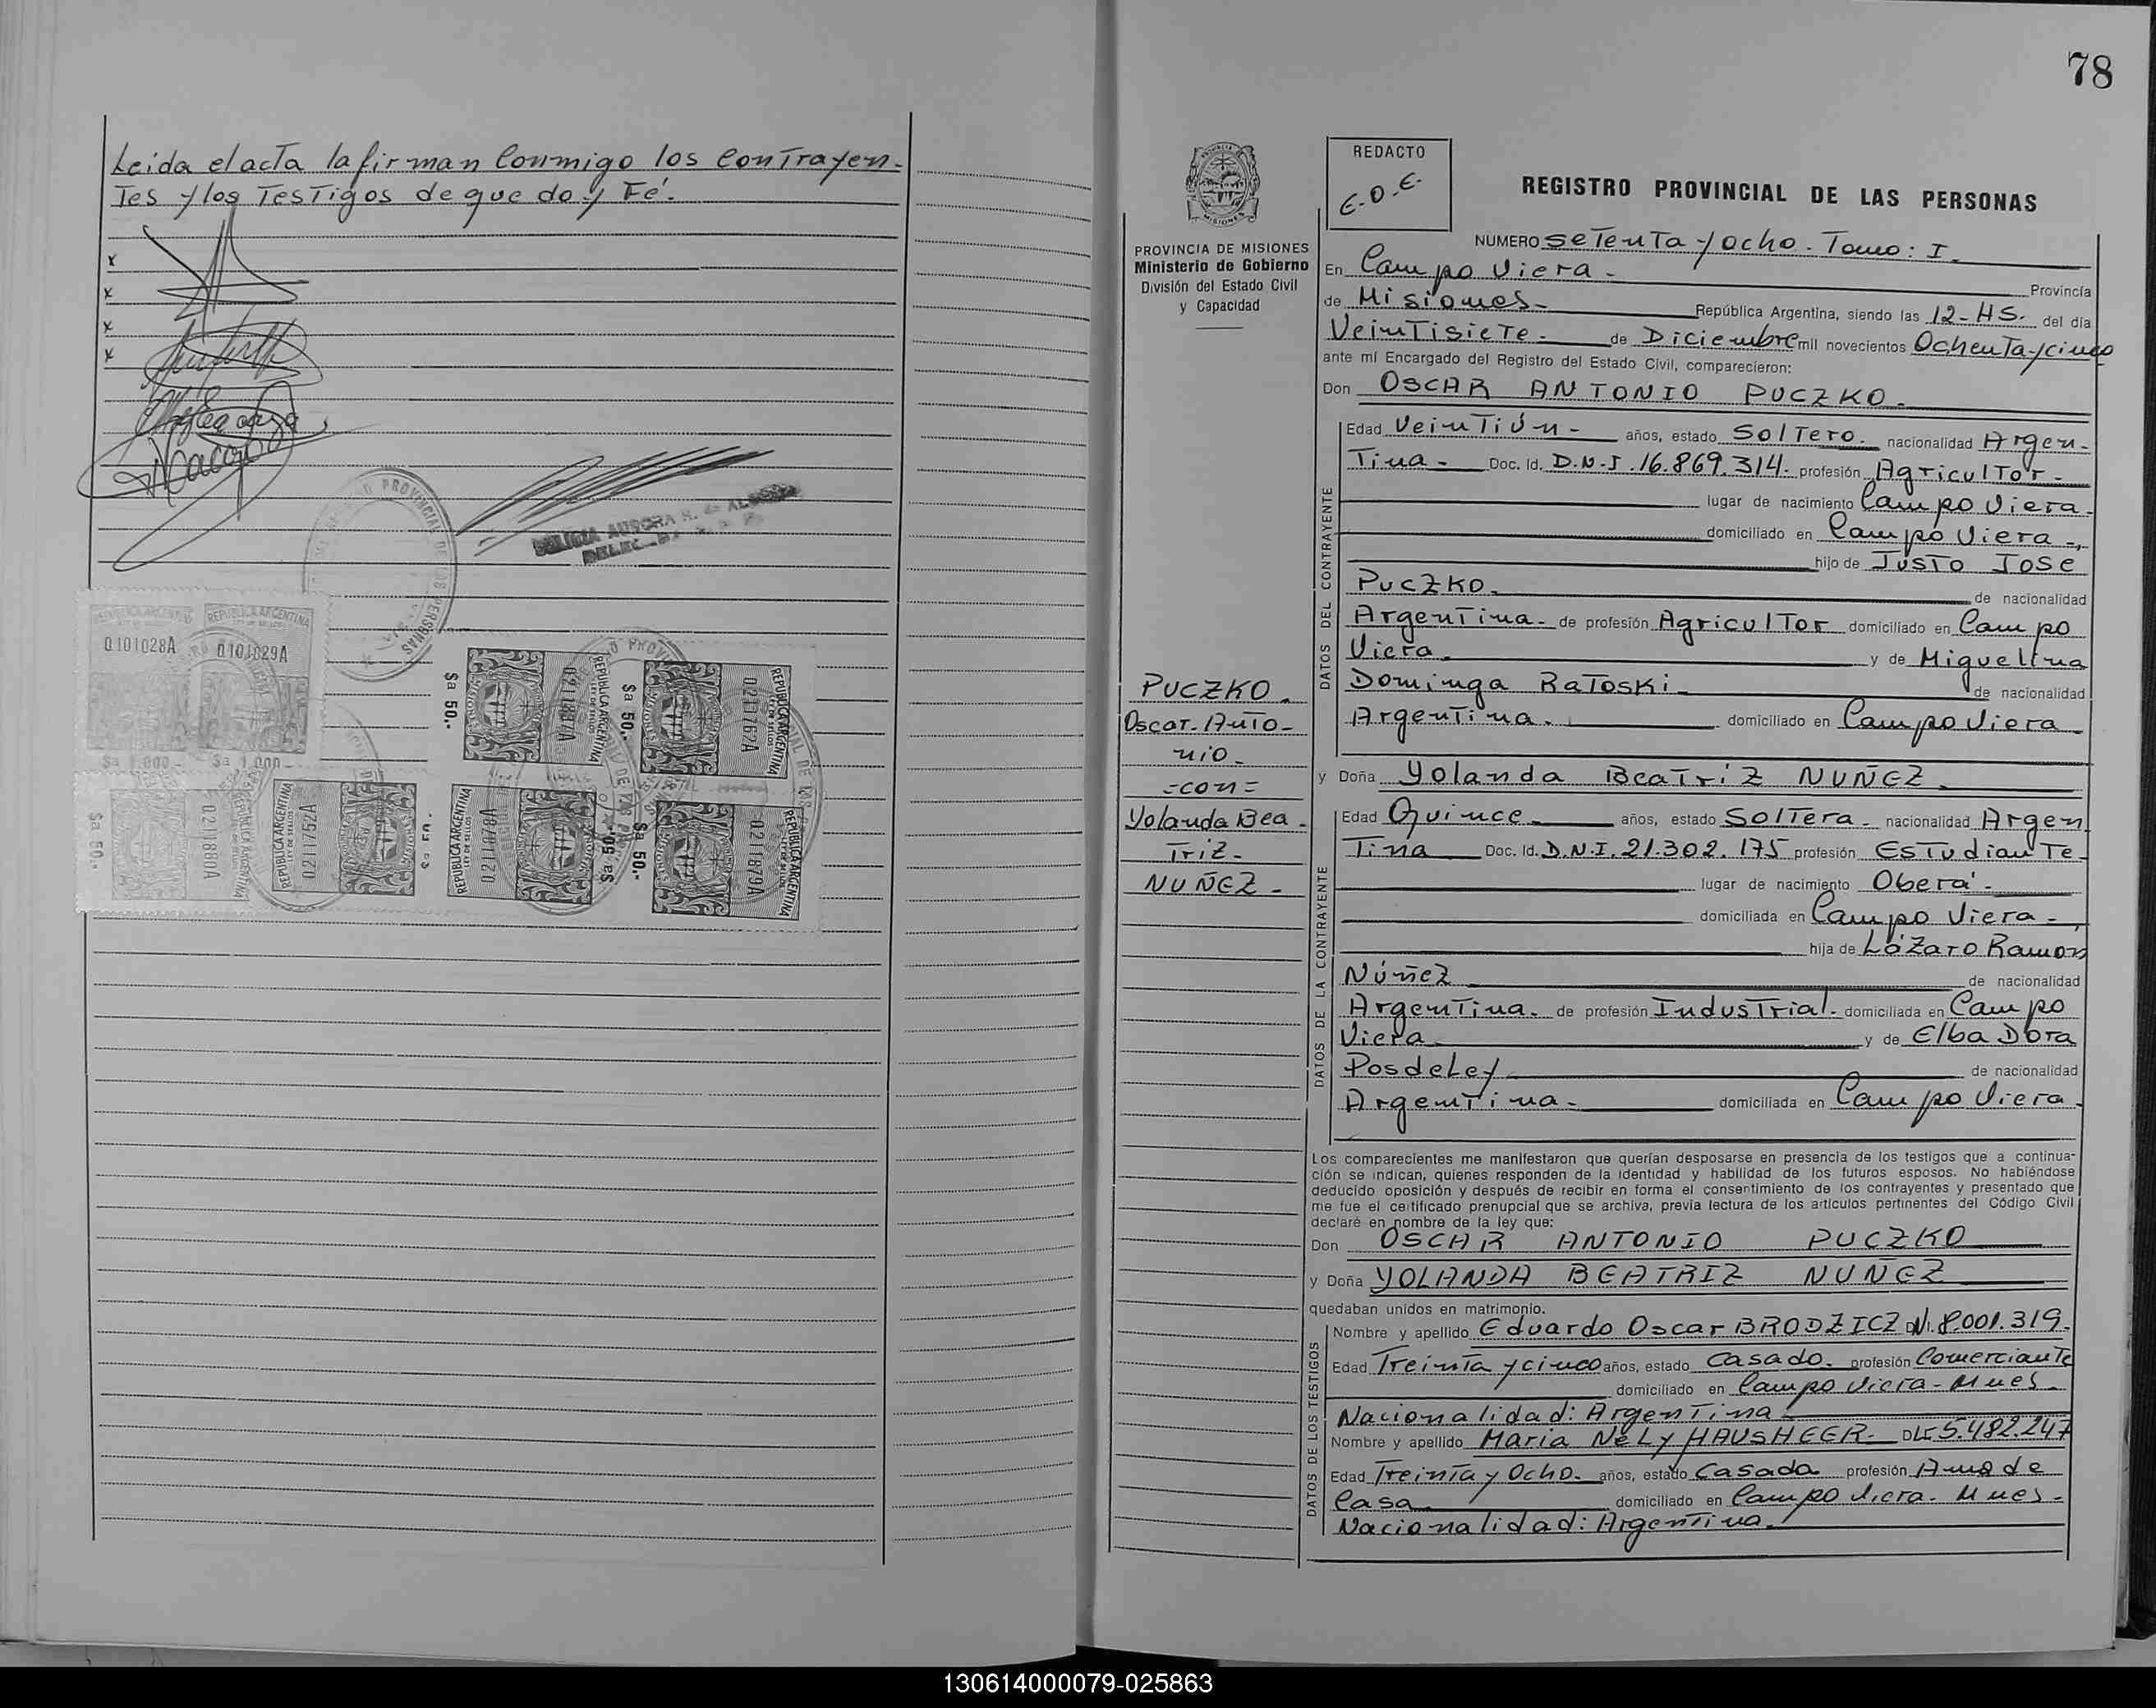 Leida el acta la firman Conmigo los Contrayen-
Tes y los Testigos de que doy Fé.
x
x
x
x
REPUBLICA ARGENTINA
0101028A
0101029A
$a 1.000.-
$a 1.000.-
REPUBLICA ARGENTINA
LEY DE SELLOS
0211837A
$a 50.-
REPUBLICA ARGENTINA
0211762A
$a 50.-
REPUBLICA ARGENTINA
0211880A
$a 50.-
REPUBLICA ARGENTINA
LEY DE SELLOS
0211752A
$a 50.-
REPUBLICA ARGENTINA
LEY DE SELLOS
0211878A
$a 50.-
REPUBLICA ARGENTINA
0211879A
$a 50.-
78
PROVINCIA DE MISIONES
Ministerio de Gobierno
División del Estado Civil
y Capacidad
REDACTO
E.D.E.
REGISTRO PROVINCIAL DE LAS PERSONAS
NUMERO seTenTa y ocho. Tomo: I.
En Campo Viera. Provincia
de Misiones República Argentina, siendo las 12-HS. del día
VeinTisieTe. de Diciembre mil novecientos OchenTa y cinco
ante mí Encargado del Registro del Estado Civil, comparecieron:
Don OSCAR ANTONIO PUCZKO.
DATOS DEL CONTRAYENTE
Edad VeinTiún- años, estado SolTero. nacionalidad Argen-
Tina- Doc. Id. D.N.I. 16.869.314. profesión AgriculTor-
lugar de nacimiento Campo Viera.
domiciliado en Campo Viera-,
hijo de JUSTO JOSE
PUCZKO. de nacionalidad
ArgenTina- de profesión AgriculTor domiciliado en Campo
Viera. y de Miguelina
Dominga RaToski- de nacionalidad
ArgenTina. domiciliado en Campo Viera
PUCZKO.
Oscar-AnTo-
nio-
=con=
Yolanda Bea-
Triz-
NUÑEZ-
y Doña Yolanda BeaTriz NUÑEZ.
DATOS DE LA CONTRAYENTE
Edad Quince. años, estado SolTera- nacionalidad Argen
Tina Doc. Id. D.N.I. 21.302.175 profesión EsTudianTe-
lugar de nacimiento Oberá-
domiciliada en Campo Viera-,
hija de Lázaro Ramón
Núñez de nacionalidad
ArgenTina. de profesión IndusTrial. domiciliada en Campo
Viera y de Elba Dora
PosdeLey de nacionalidad
ArgenTina- domiciliada en Campo Viera-
Los comparecientes me manifestaron que querían desposarse en presencia de los testigos que a continua-
ción se indican, quienes responden de la identidad y habilidad de los futuros esposos. No habiéndose
deducido oposición y después de recibir en forma el consentimiento de los contrayentes y presentado que
me fue el certificado prenupcial que se archiva, previa lectura de los artículos pertinentes del Código Civil
declaré en nombre de la ley que:
Don OSCAR ANTONIO PUCZKO
y Doña YOLANDA BEATRIZ NUÑEZ
quedaban unidos en matrimonio.
DATOS DE LOS TESTIGOS
Nombre y apellido Eduardo Oscar BRODZICZ DNI. 8.001.319.
Edad TreinTa y cinco años, estado Casado. profesión ComercianTe
domiciliado en Campo Viera-Mnes.
Nacionalidad: ArgenTina
Nombre y apellido María NeLy HAUSHEER- DLE 5.482.247
Edad TreinTa y Ocho. años, estado Casada profesión Ama de
Casa domiciliado en Campo Viera. Mnes-
Nacionalidad: ArgenTina.
130614000079-025863